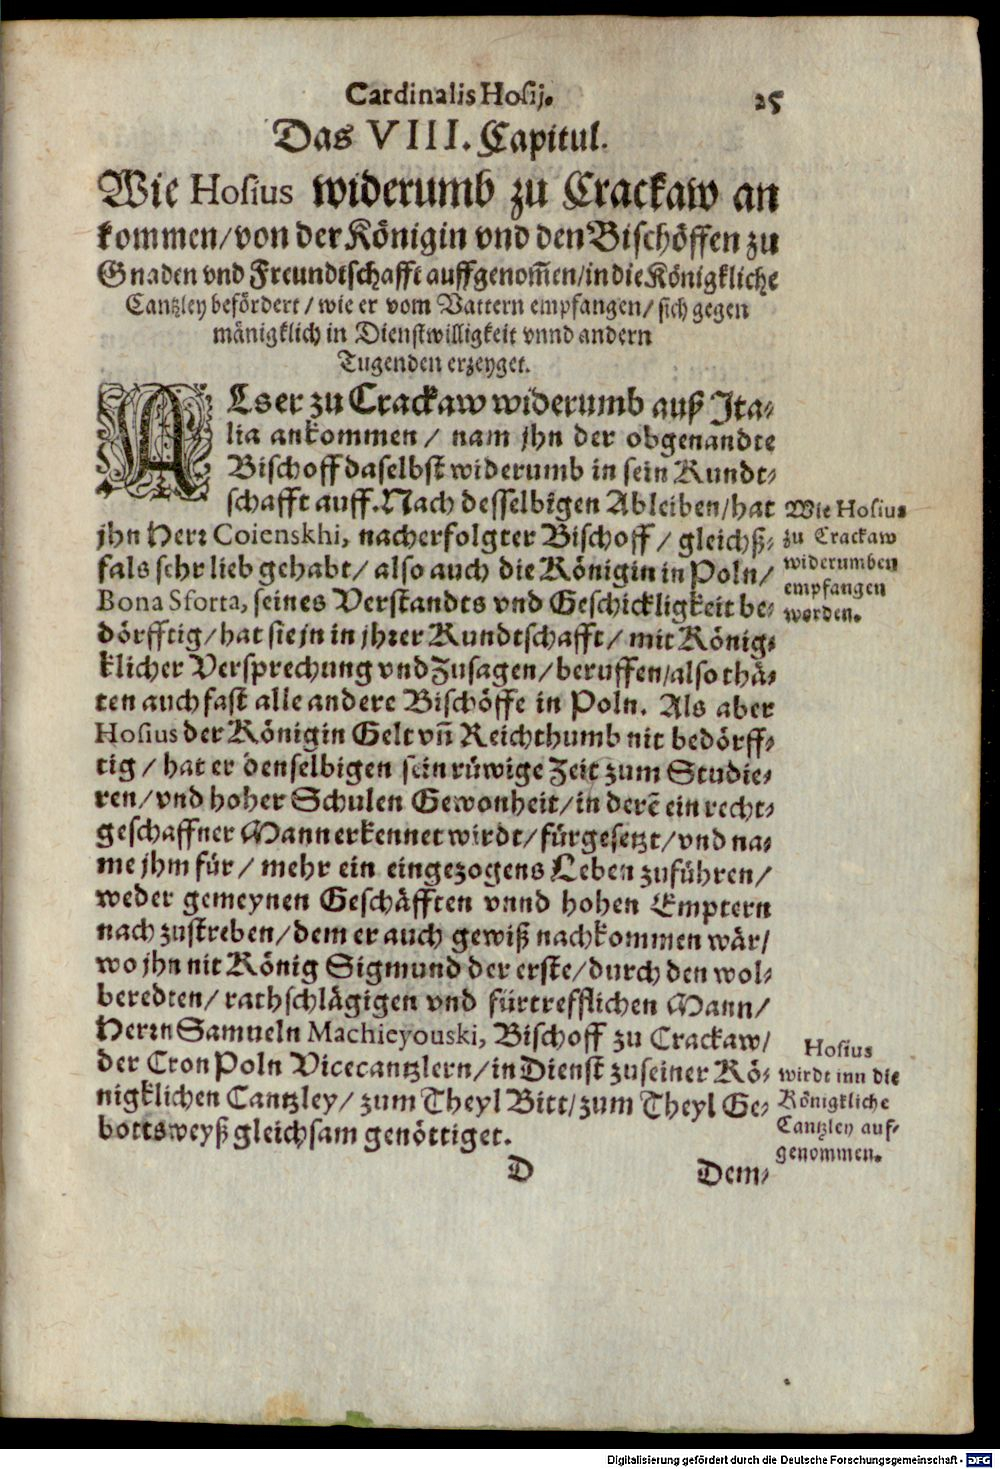 Cardinalis Hosij. 25
Das VIII. Capitul.
Wie Hosius widerumb zu Crackaw an
kommen/ von der Königin vnd den Bischöffen zu
Gnaden vnd Freundtschafft auffgenom̃en/ in die Königkliche
Cantzley befördert/ wie er vom Vattern empfangen/ sich gegen
mänigklich in Dienstwilligkeit vnnd andern
Tugenden erzeyget.
ALs er zu Crackaw widerumb auß Ita-
lia ankommen/ nam jhn der obgenandte
Bischoff daselbst widerumb in sein Kundt-
schafft auff. Nach desselbigen Ableiben/ hat
jhn Herr Coienskhi, nacherfolgter Bischoff/ gleichß-
fals sehr lieb gehabt/ also auch die Königin in Poln/
Bona Sforta, seines Verstandts vnd Geschickligkeit be-
dörfftig/ hat sie jn in jhrer Kundtschafft/ mit König-
klicher Versprechung vnd Zusagen/ beruffen/ also thä-
ten auch fast alle andere Bischöffe in Poln. Als aber
Hosius der Königin Gelt vñ Reichthumb nit bedörff-
tig/ hat er denselbigen sein rüwige Zeit zum Studie-
ren/ vnd hoher Schulen Gewonheit/ in derẽ ein recht-
geschaffner Mann erkennet wirdt/ fürgesetzt/ vnd na-
me jhm für/ mehr ein eingezogens Leben zuführen/
weder gemeynen Geschäfften vnnd hohen Emptern
nach zustreben/ dem er auch gewiß nachkommen wär/
wo jhn nit König Sigmund der erste/ durch den wol-
beredten/ rathschlägigen vnd fürtrefflichen Mann/
Herrn Samueln Machieyouski, Bischoff zu Crackaw/
der Cron Poln Vicecantzlern/ in Dienst zu seiner Kö-
nigklichen Cantzley/ zum Theyl Bitt/ zum Theyl Ge-
bottsweyß gleichsam genöttiget.
D Dem-
Wie Hosius
zu Crackaw
widerumben
empfangen
worden.
Hosius
wirdt inn die
Königkliche
Cantzley auf-
genommen.
Digitalisierung gefördert durch die Deutsche Forschungsgemeinschaft - DFG